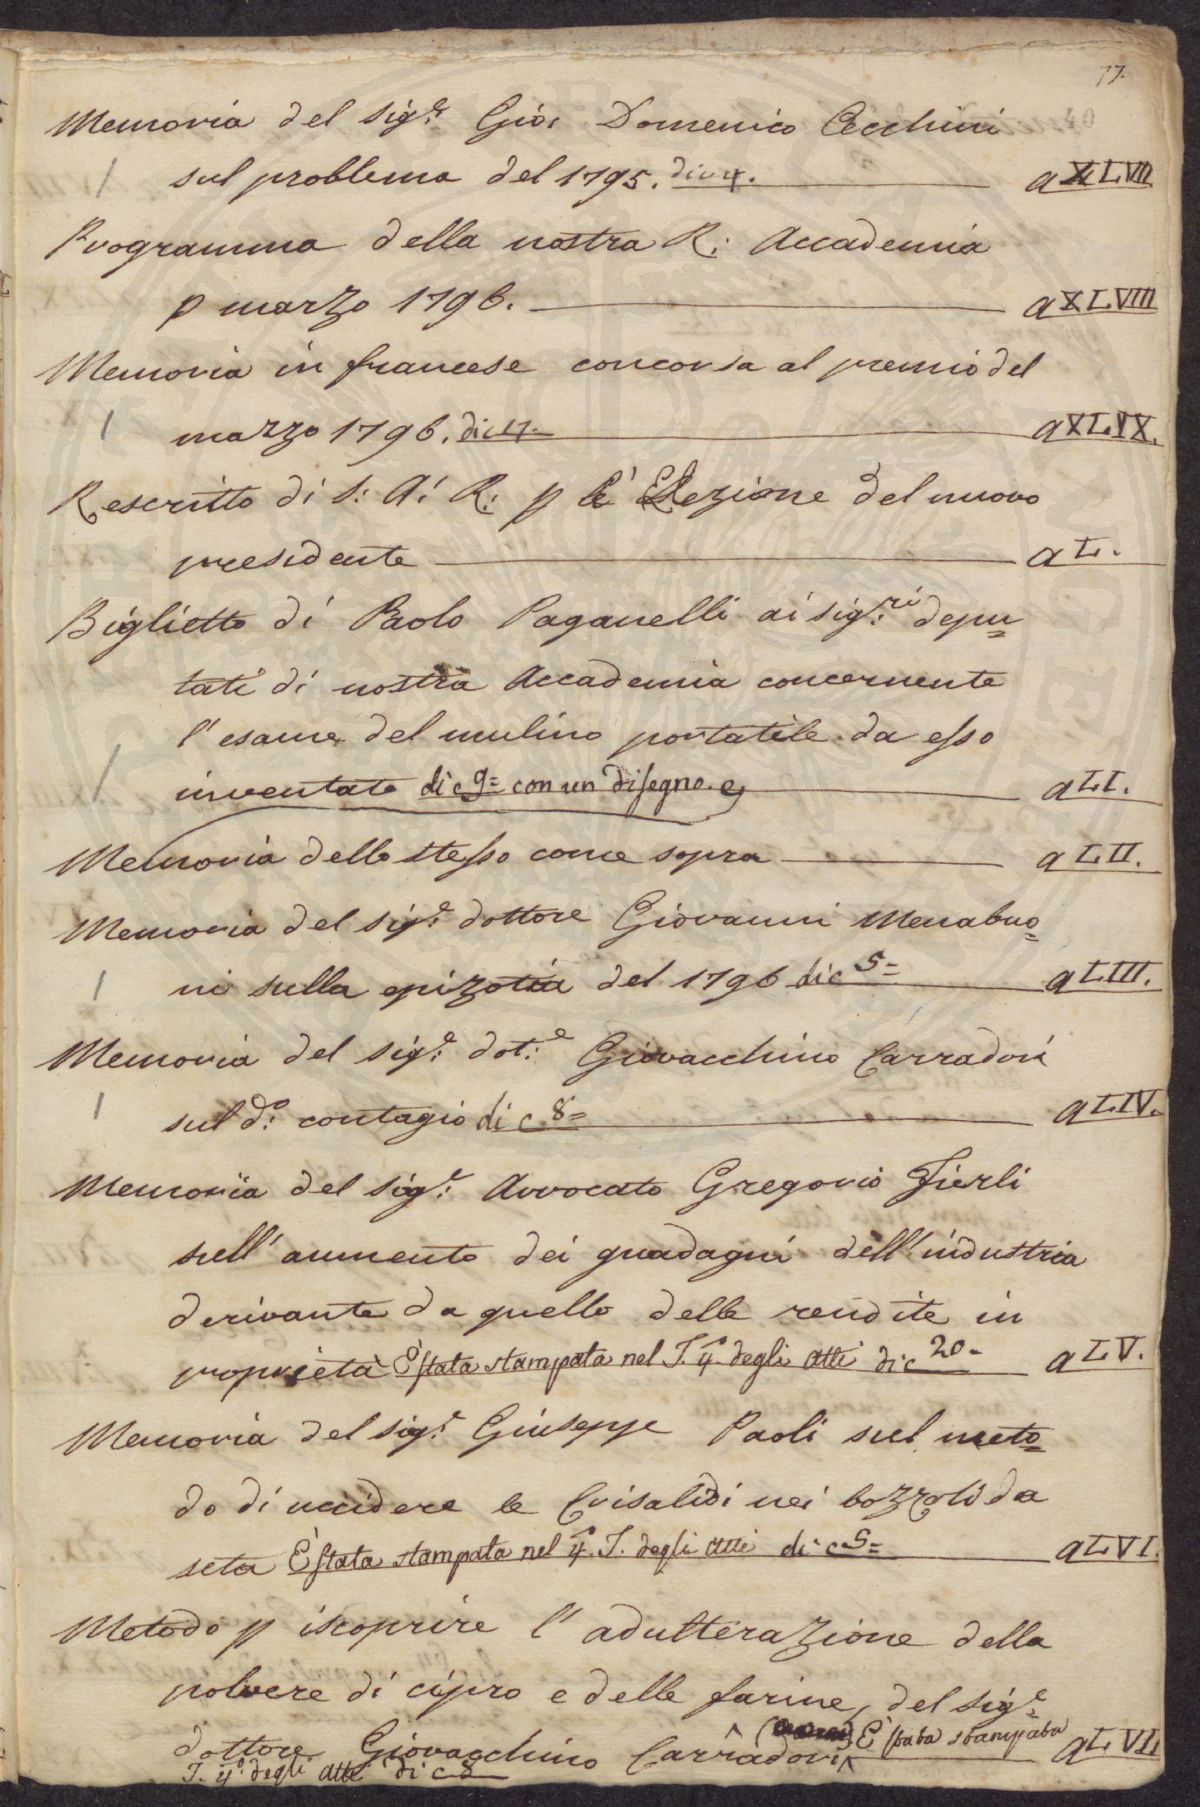 77.
Memoria del Sig.e Gio: Domenico Cecchini
sul problema del 1795. di c 4. a XLVII
Programma della nostra R: Accademia
p marzo 1796. a XLVIII
Memoria in francese concorsa al premio del
marzo 1796. di c 4. a XLIX.
Rescritto di S: A: R: p l'Elezione del nuovo
presidente a L.
Biglietto di Paolo Paganelli ai Sig:ri depu=
tati di nostra Accademia concernente
l'esame del mulino portatile da esso
inventato di c 9= con un disegno. e a LI.
Memoria dello stesso come sopra a LII.
Memoria del Sig:e dottore Giovanni Menabuo=
ni sulla epizotia del 1796 di c 5= a LIII.
Memoria del Sig:e dot:e Giovacchino Carradori
sul d:o contagio di c 8= a LIV.
Memoria del Sig:e Avvocato Gregorio Fierli
sull'aumento dei guadagni dell'industria
derivante da quello delle rendite in
proprietà È stata stampata nel T. 4.o degli Atti di c 20= a LV.
Memoria del Sig:e Giuseppe Paoli sul meto=
do di uccidere le Crisalidi nei bozzoli da
seta È stata stampata nel 4.o T. degli Atti di c 5= a LVI.
Metodo p iscoprire l'adulterazione della
polvere di cipro e delle farine, del Sig:e
dottore Giovacchino Carradori È stata stampata a LVII
T. 4.o degli Atti di c 8